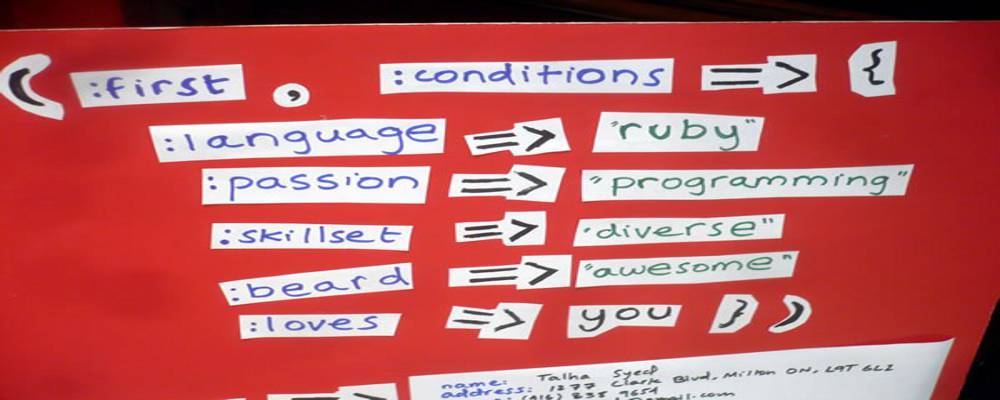 ( :first , :conditions => {
:language => "ruby"
:passion => "programming"
:skillset => "diverse"
:beard => "awesome"
:loves => you } )
name: Talha Syed
address: 1277 Clark Blvd. Milton ON, L9T 6L2
(416) 835 9654